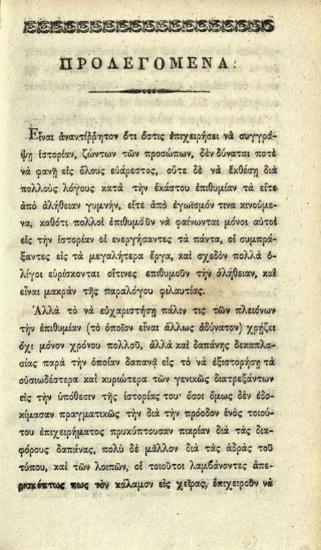 ΠΡΟΛΕΓΟΜΕΝΑ.
Εἶναι ἀναντίῤῥητον ὅτι ὅστις ἐπιχειρήσει νὰ συγγρά-
ψῃ ἱστορίαν, ζώντων τῶν προσώπων, δὲν δύναται ποτὲ
νὰ φανῇ εἰς ὅλους εὐάρεστος, οὔτε δὲ νὰ ἐκθέσῃ διὰ
πολλοὺς λόγους κατὰ τὴν ἑκάστου ἐπιθυμίαν τὰ εἴτε
ἀπὸ ἀλήθειαν γυμνήν, εἴτε ἀπὸ ἐγωϊσμόν τινα κινούμε-
να, καθότι πολλοὶ ἐπιθυμοῦν νὰ φαίνωνται μόνοι αὐτοὶ
εἰς τὴν ἱστορίαν οἱ ἐνεργήσαντες τὰ πάντα, οἱ συμπρά-
ξαντες εἰς τὰ μεγαλήτερα ἔργα, καὶ σχεδὸν πολλὰ ὀ-
λίγοι εὑρίσκονται οἵτινες ἐπιθυμοῦν τὴν ἀλήθειαν, καὶ
εἶναι μακρὰν τῆς παραλόγου φιλαυτίας.
Ἀλλὰ τὸ νὰ εὐχαριστήσῃ πάλιν τις τῶν πλειόνων
τὴν ἐπιθυμίαν (τὸ ὁποῖον εἶναι ἄλλως ἀδύνατον) χρῄζει
ὄχι μόνον χρόνου πολλοῦ, ἀλλὰ καὶ δαπάνης δεκαπλα-
σίας παρὰ τὴν ὁποίαν δαπανᾷ εἰς τὸ νὰ ἐξιστορήσῃ τὰ
οὐσιωδέστερα καὶ κυριώτερα τῶν γενικῶς διατρεξάντων
εἰς τὴν ὑπόθεσιν τῆς ἱστορίας του· ὅσοι ὅμως δὲν ἐδο-
κίμασαν πραγματικῶς τὴν διὰ τὴν πρόοδον ἑνὸς τοιού-
του ἐπιχειρήματος προκύπτουσαν πικρίαν διὰ τὰς δια-
φόρους δαπάνας, πολὺ δὲ μᾶλλον διὰ τὰς ἁδρὰς τοῦ
τύπου, καὶ τῶν λοιπῶν, οἱ τοιοῦτοι λαμβάνοντες ἀπε-
ρισκέπτως πως τὸν κάλαμον εἰς χεῖρας, ἐπιχειροῦν νὰ